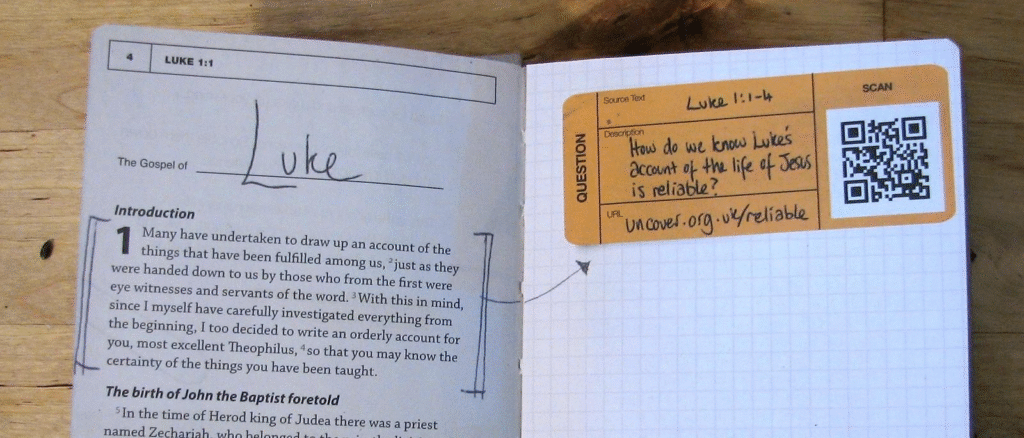 4 LUKE 1:1
The Gospel of Luke
Introduction
1 Many have undertaken to draw up an account of the
things that have been fulfilled among us, ²just as they
were handed down to us by those who from the first were
eye witnesses and servants of the word. ³With this in mind,
since I myself have carefully investigated everything from
the beginning, I too decided to write an orderly account for
you, most excellent Theophilus, ⁴so that you may know the
certainty of the things you have been taught.
The birth of John the Baptist foretold
⁵In the time of Herod king of Judea there was a priest
named Zechariah, who belonged to
QUESTION
Source Text
Luke 1:1-4
Description
How do we know Luke's
account of the life of Jesus
is reliable?
URL
uncover.org.uk/reliable
SCAN